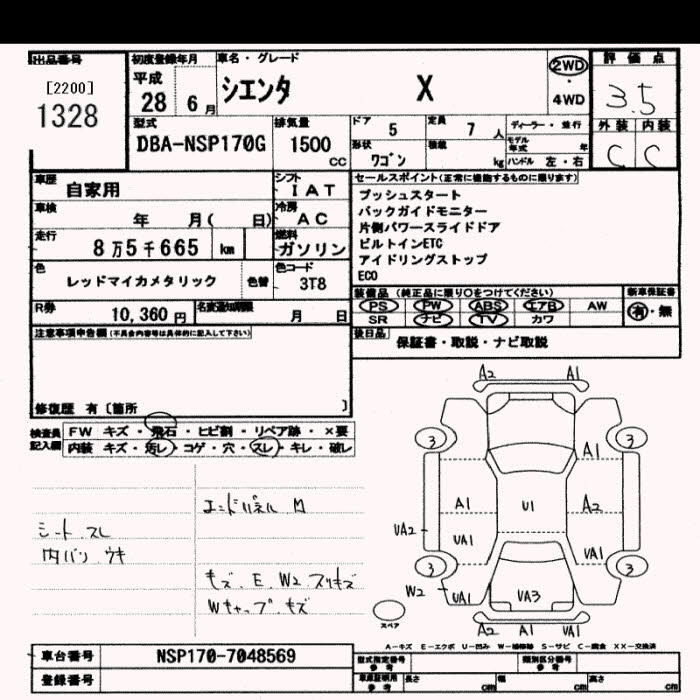 出品番号 初度登録年月 車名・グレード 評価点
[2200] 平成 2WD
1328 28 6月 シエンタ X ・ 3.5
4WD
型式 排気量 ドア 5 定員 7人 ディーラー・並行 外装 内装
DBA-NSP170G 1500 CC 形状 ワゴン 積載 kg モデル年式 年 C C
ハンドル 左・右
車歴 自家用 シフト IAT セールスポイント(正常に機能するものに限ります)
車検 年 月( 日) 冷房 AC プッシュスタート
バックガイドモニター
走行 8万5千665 km 燃料 ガソリン 片側パワースライドドア
ビルトインETC
色 レッドマイカメタリック 色替 色コード 3T8 アイドリングストップ
ECO
R券 10,360円 名変通知期限 月 日 装備品(純正品に限り○をつけてください) 新車保証書
PS PW ABS エアB AW 有・無
SR ナビ TV カワ
注意事項申告欄(不具合内容等は具体的に記入して下さい) 後日品 保証書・取説・ナビ取説
修復歴 有〔箇所 〕
検査員記入欄 FW キズ・飛石・ヒビ割・リペア跡・×要
内装 キズ・汚レ・コゲ・穴・スレ・キレ・破レ
エンドパネル M
シート スレ
内バリ ウキ
キズ、E、W2 スリキズ
Wキャップ キズ
A2 A1
3 3
A1
A1 U1 A2
VA2
VA1 VA1
3 3
W2 VA1 VA3 VA1
スペア A2 A1 VA1
A-キズ E-エクボ U-凹み W-補修跡 S-サビ C-腐食 XX-交換済
車台番号 NSP170-7048569 型式指定番号 参考 類別区分番号 参考
登録番号 車庫証明用 参考 長さ cm 幅 cm 高さ cm